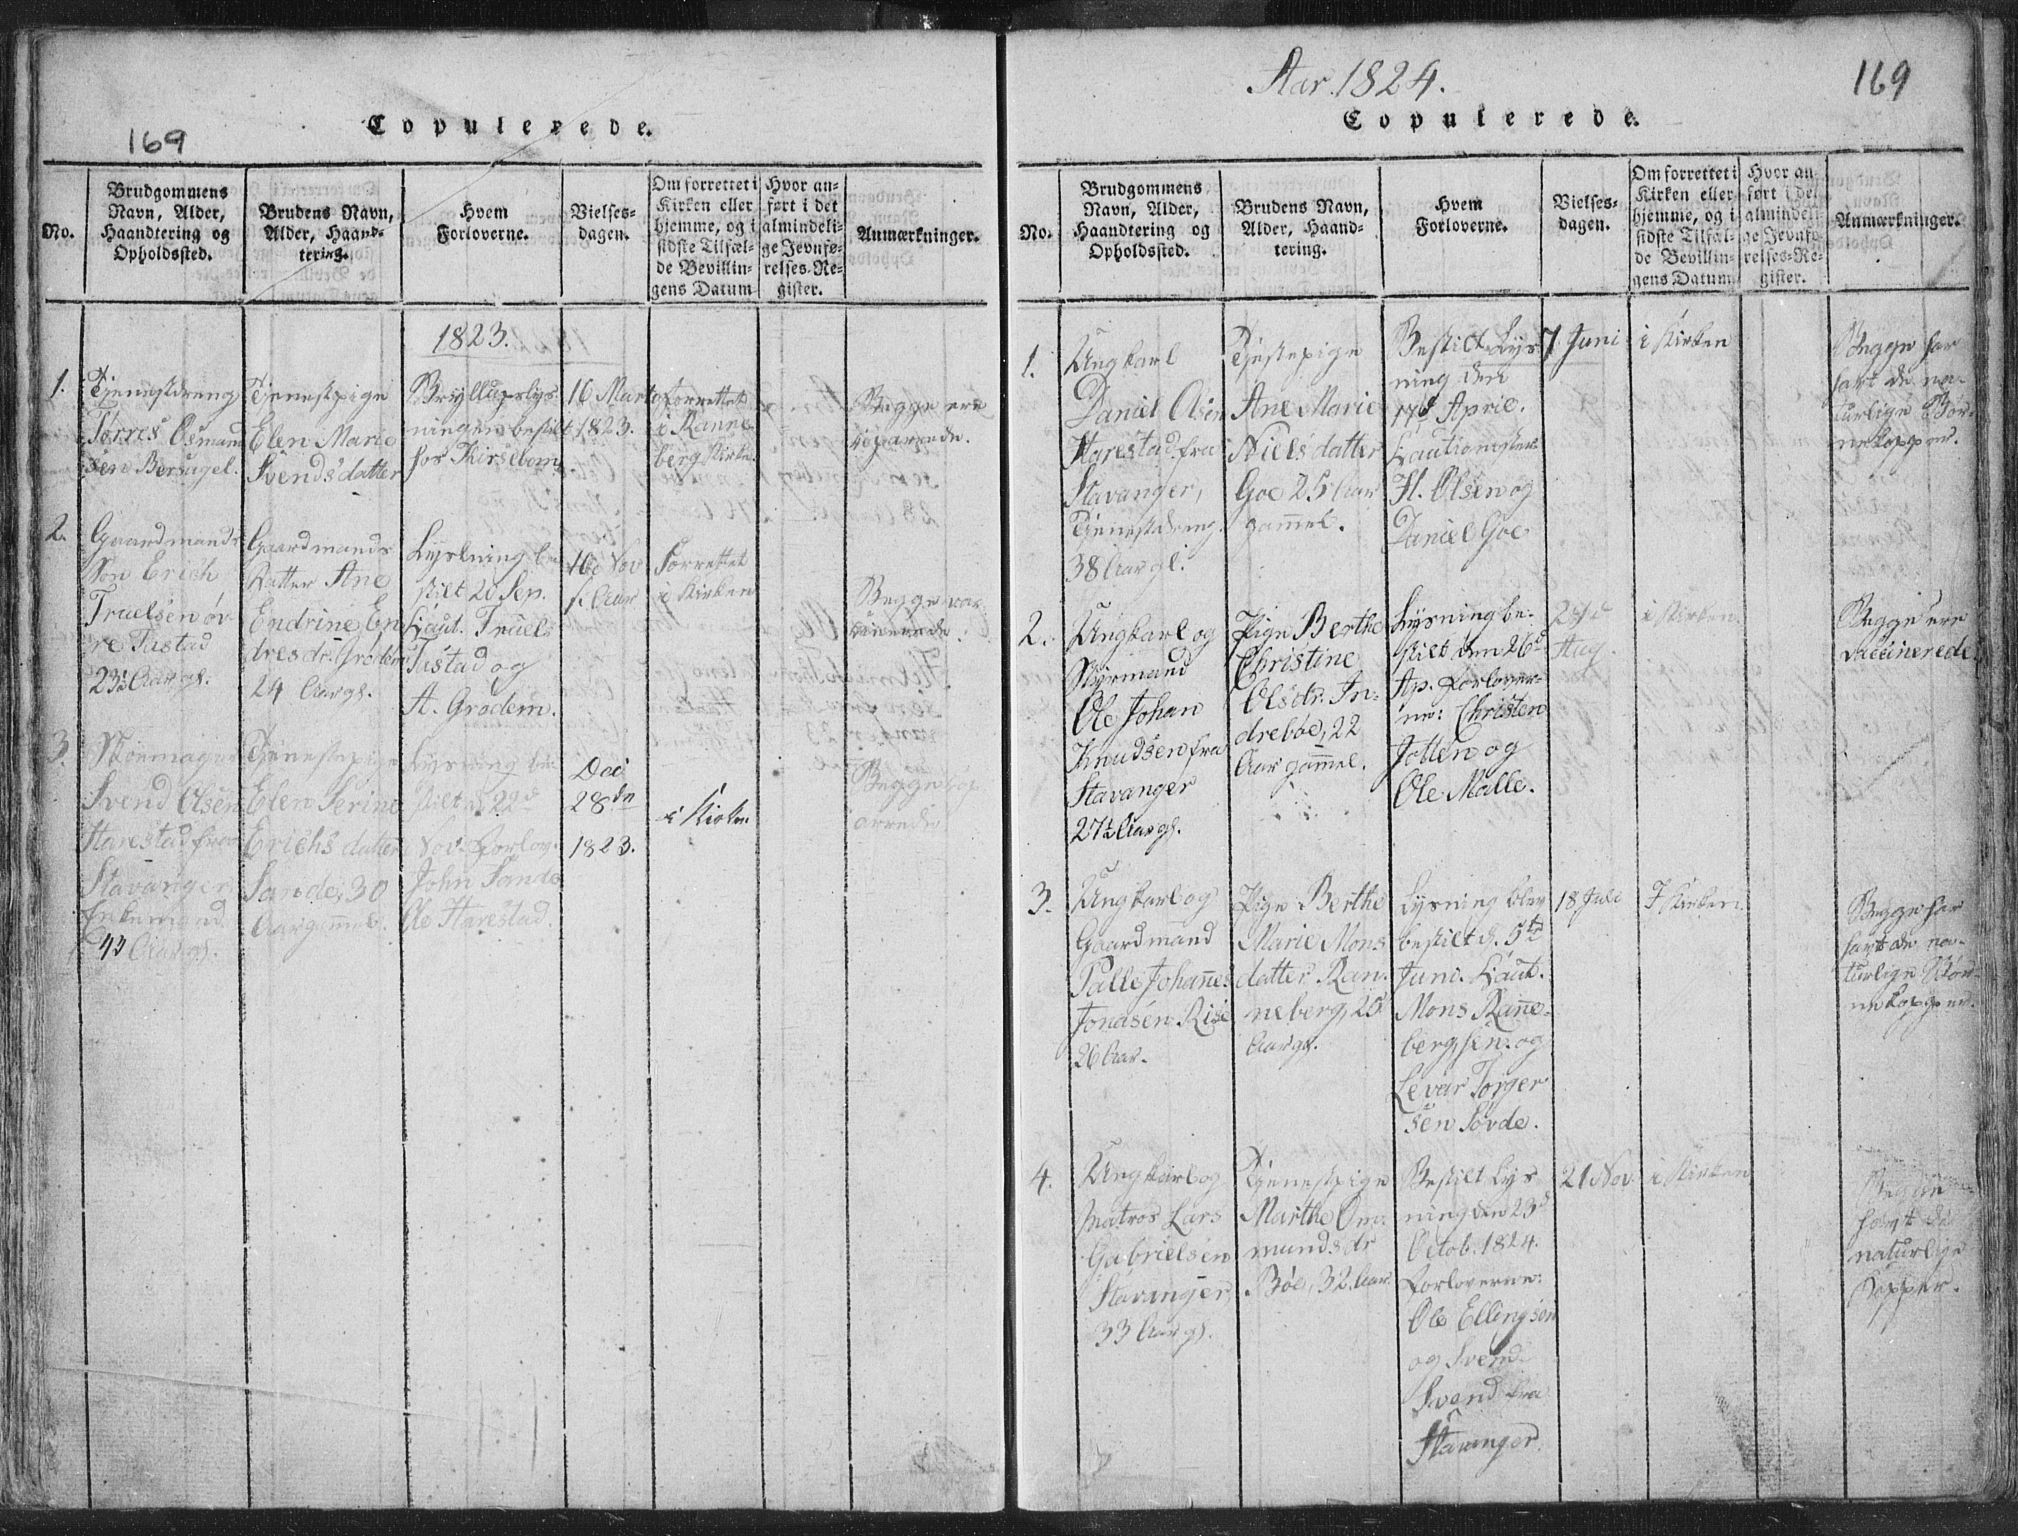 169
Copulerede.
No.
Brudgommens
Navn, Alder,
Haandtering og
Opholdssted.
Brudens Navn,
Alder, Haand-
tering.
Hvem
Forloverne.
Vielses-
dagen.
Om forrettet i
Kirken eller
hjemme, og i
sidste Tilfæl-
de Bevillin-
gens Datum
Hvor an-
ført i det
almindeli-
ge Jevnfø-
relses-Re-
gister.
Anmærkninger.
1823.
1.
Tjenestdreng
Tørres Osmund
sen Bersagel.
Tjenestpige
Elen Marie
Svendsdatter
Bryllupslys
ningen bestilt
hos Kirsebom
16 Marts
1823.
Forrettet
i Ranne
berg Kirke
Begge ere
2.
Gaardmands
Søn Erich
Truelsen øv
re Tastad
23½ Aar gl.
Gaardmands
Datter Ane
Endrine En
dresdr. Grødem
24 Aar gl.
Lysning be
stilt 20 Sep.
Caut. Truels
Tastad og
A. Grødem.
16 Nov
s. Aar
Forrettet
i Kirken
Begge var
3.
Skoemager
Svend Olsen
Harestad fra
Stavanger
Enkemand
43 Aar gl.
Tjenestepige
Elen Serine
Erichsdatter
Sande, 30
Aar gammel.
Lysning be
stilt d. 22d
Nov. Forlov.
John Sande
Ole Harestad.
Dec
28de
1823.
i Kirken
Begge
169
Aar 1824.
Copulerede.
No.
Brudgommens
Navn, Alder,
Haandtering og
Opholdssted.
Brudens Navn,
Alder, Haand-
tering.
Hvem
Forloverne.
Vielses-
dagen.
Om forrettet i
Kirken eller
hjemme, og i
sidste Tilfæl-
de Bevillin-
gens Datum
Hvor an-
ført i det
almindeli-
ge Jevnfø-
relses-Re-
gister.
Anmærkninger.
1.
Ungkarl
Daniel Olsen
Harestad fra
Stavanger,
Tjenestdreng
38 Aar gl.
Tjestepige
Ane Marie
Nielsdatter
Goe 25 Aar
gammel.
Bestilt Lys
ning den
17d April.
Cautionister
H. Olsen og
Daniel Goe
7 Juni
i Kirken
Begge har
havt de na-
turlige Bør-
nekopper.
2.
Ungkarl og
Styrmand
Ole Johan
Knudsen fra
Stavanger
27½ Aar gl.
Pige Berthe
Christine
Olsdr. In-
drebøe, 22
Aar gammel.
Lysning be-
stilt den 26d
Ap. Forlover-
ne: Christen
Jåtten og
Ole Malle.
Aug.
i Kirken
Begge ere
vaccinerede.
3.
Ungkarl og
Gaardmand
Palle Johannes
Jonasen Rise
26 Aar.
Pige Berthe
Marie Mons
datter Ran-
neberg, 25
Aar gl.
Lysning blev
bestilt d. 5td
Juni. Caut.
Mons Ranne-
berg sen. og
Levar Torger
sen Sövde.
18 Juli
I Kirken
Begge har
havt de na-
turlige Bør-
nekopper.
4.
Ungkarl og
Matros Lars
Gabrielsen
Stavanger,
33 Aar gl.
Tjenestpige
Marthe Om-
mundsdr
Bøe, 32 Aar
Bestilt Lys
ning den 23d
Octob. 1824.
Forloverne:
Ole Ellingsen
og Svend
Svend fra
Stavanger
21 Nov.
i Kirken
Begge
havt de
naturlige
Kopper.